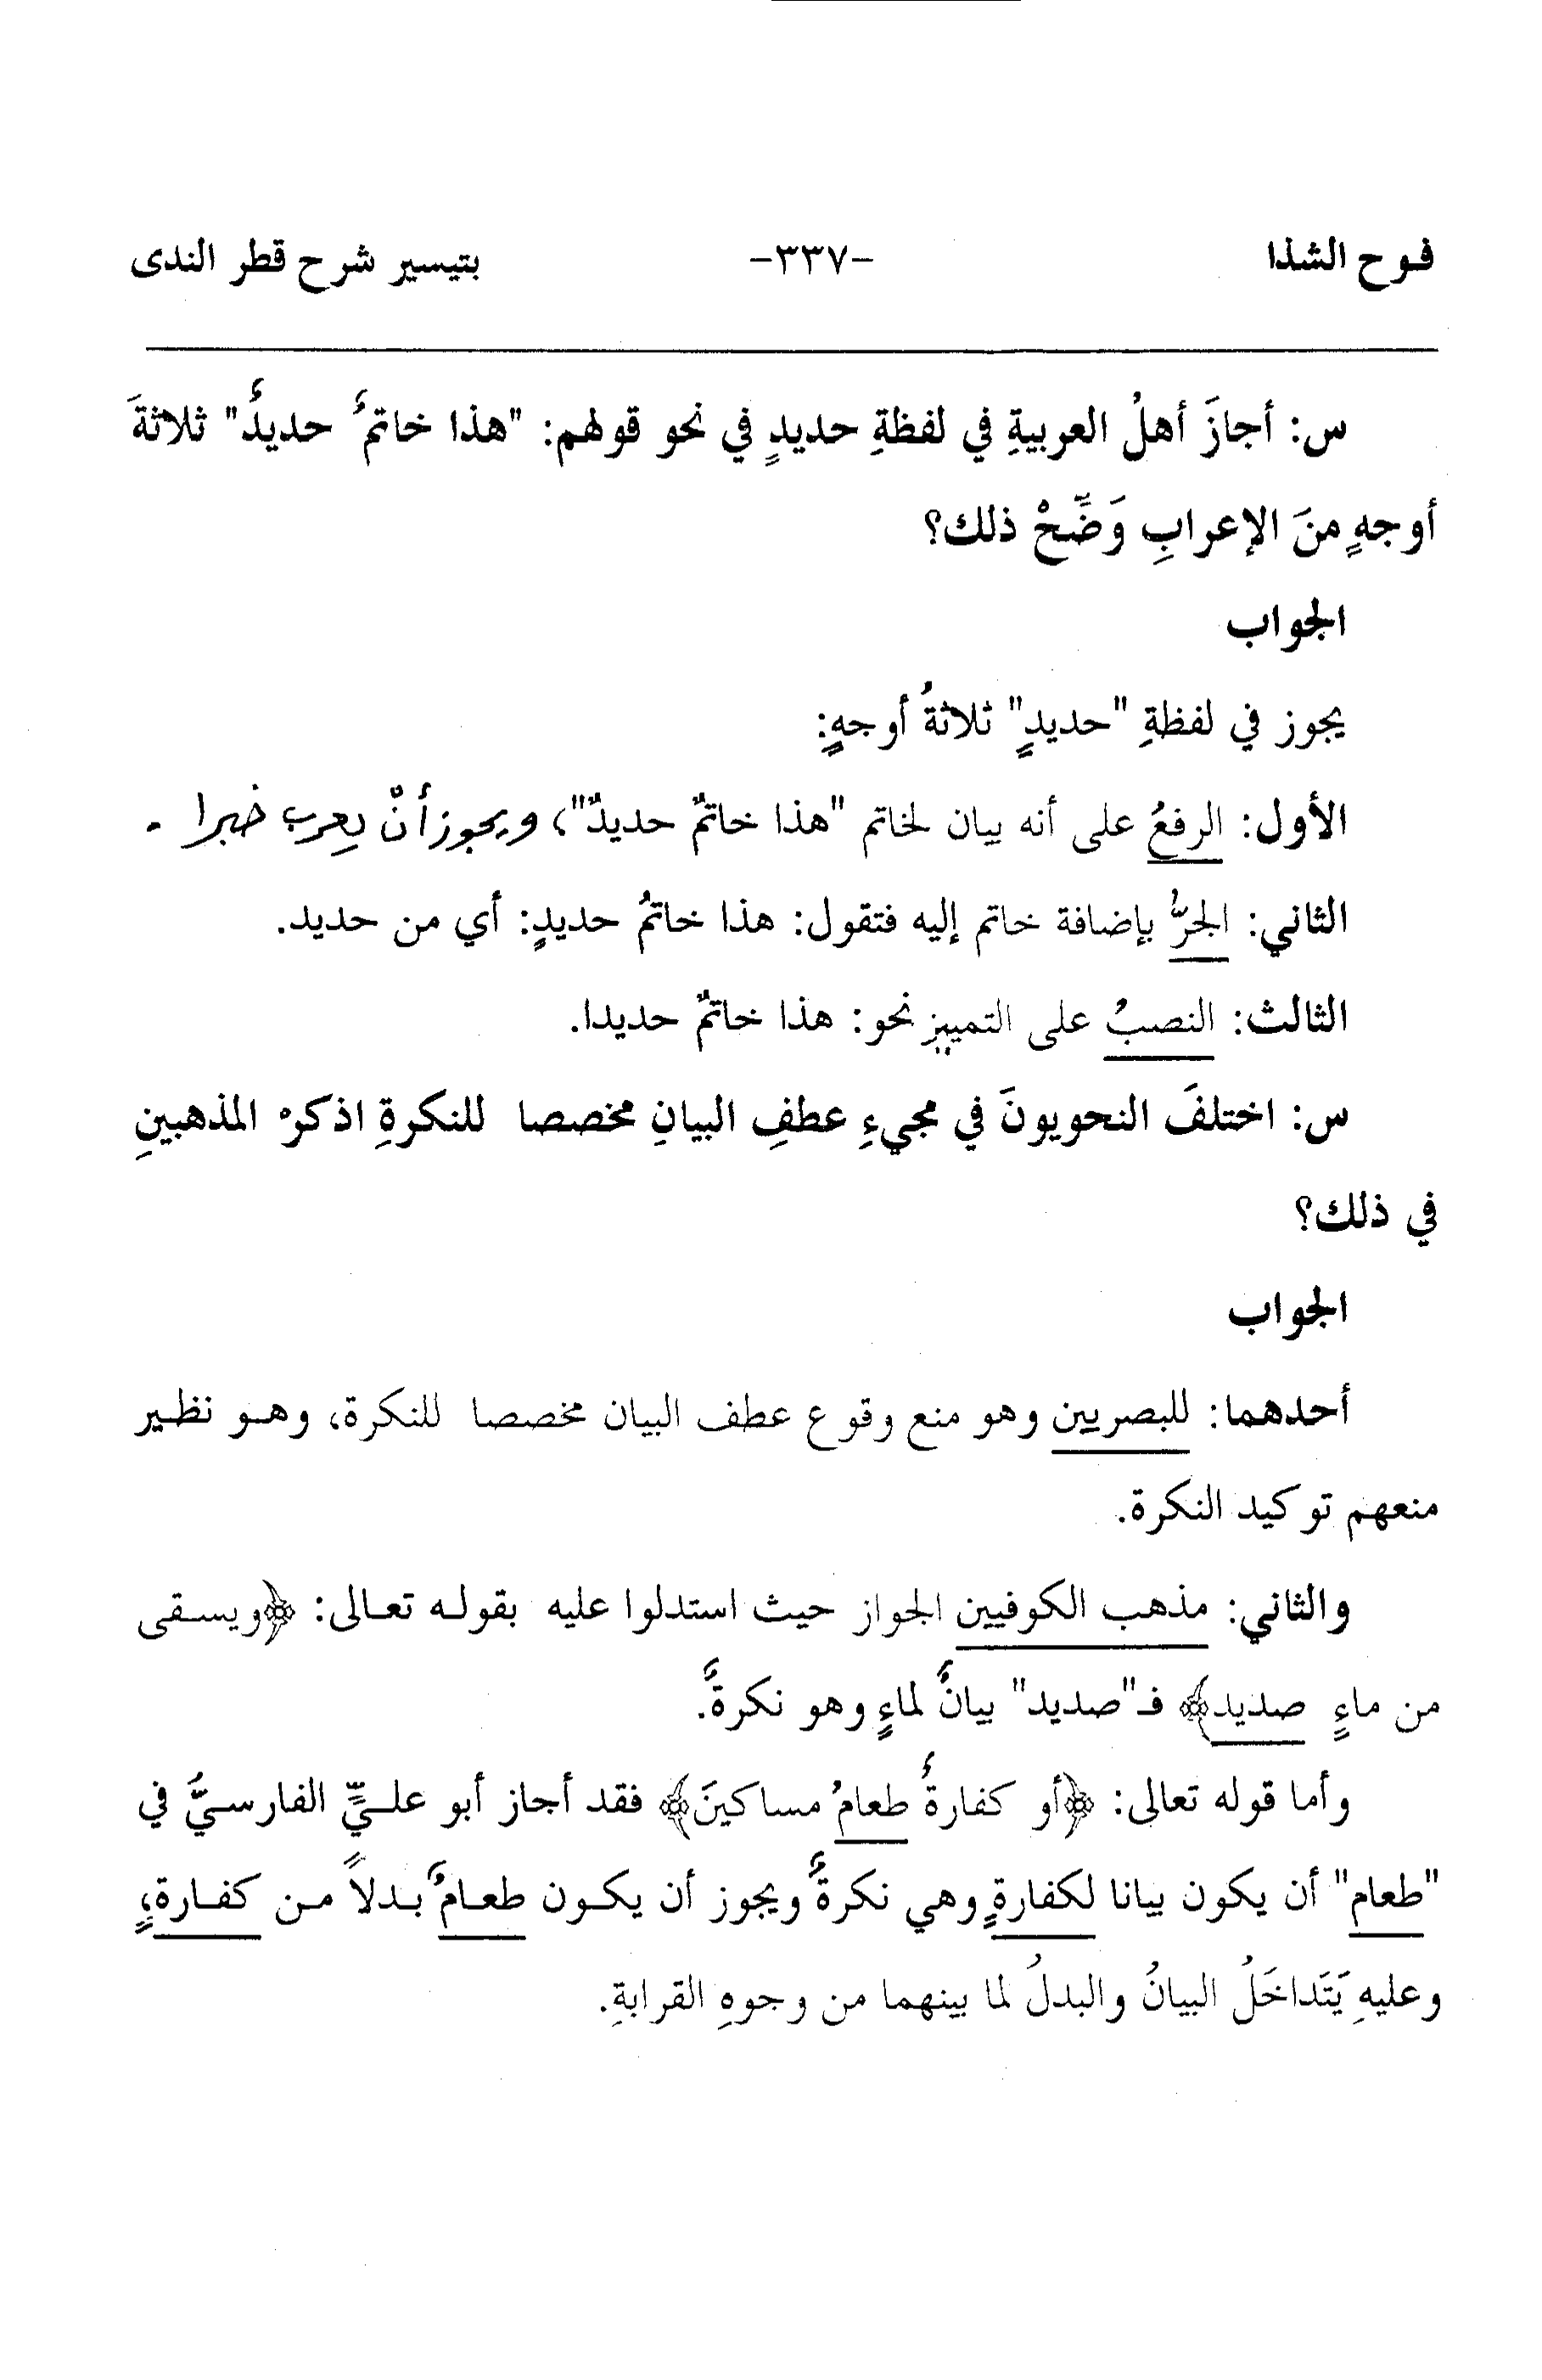 فوح الشذا -٣٣٧- بتيسير شرح قطر الندى
س: أجازَ أهلُ العربيةِ في لفظةِ حديدٍ في نحو قولهم: "هذا خاتمٌ حديدٌ" ثلاثةَ
أوجهٍ منَ الإعرابِ وَضِّحْ ذلك؟
الجواب
يجوز في لفظةِ "حديدٍ" ثلاثةُ أوجهٍ:
الأول: الرفعُ على أنه بيان لخاتم "هذا خاتمٌ حديدٌ"، ويجوز أنْ يعرب خبرا .
الثاني: الجرُّ بإضافة خاتم إليه فتقول: هذا خاتمُ حديدٍ: أي من حديد.
الثالث: النصبُ على التمييزِ نحو: هذا خاتمٌ حديدا.
س: اختلفَ النحويونَ في مجيءِ عطفِ البيانِ مخصصا للنكرةِ اذكرْ المذهبينِ
في ذلك؟
الجواب
أحدهما: للبصريين وهو منع وقوع عطف البيان مخصصا للنكرة، وهو نظير
منعهم توكيد النكرة.
والثاني: مذهب الكوفيين الجواز حيث استدلوا عليه بقوله تعالى: ﴿ويسقى
من ماءٍ صديد﴾ فـ"صديد" بيانٌ لماءٍ وهو نكرةٌ.
وأما قوله تعالى: ﴿أو كفارةٌ طعامُ مساكينَ﴾ فقد أجاز أبو عليٍّ الفارسيُّ في
"طعام" أن يكون بيانا لكفارةٍ وهي نكرةٌ ويجوز أن يكون طعامٌ بدلاً من كفارةٍ،
وعليهِ يَتَداخَلُ البيانُ والبدلُ لما بينهما من وجوهِ القرابةِ.